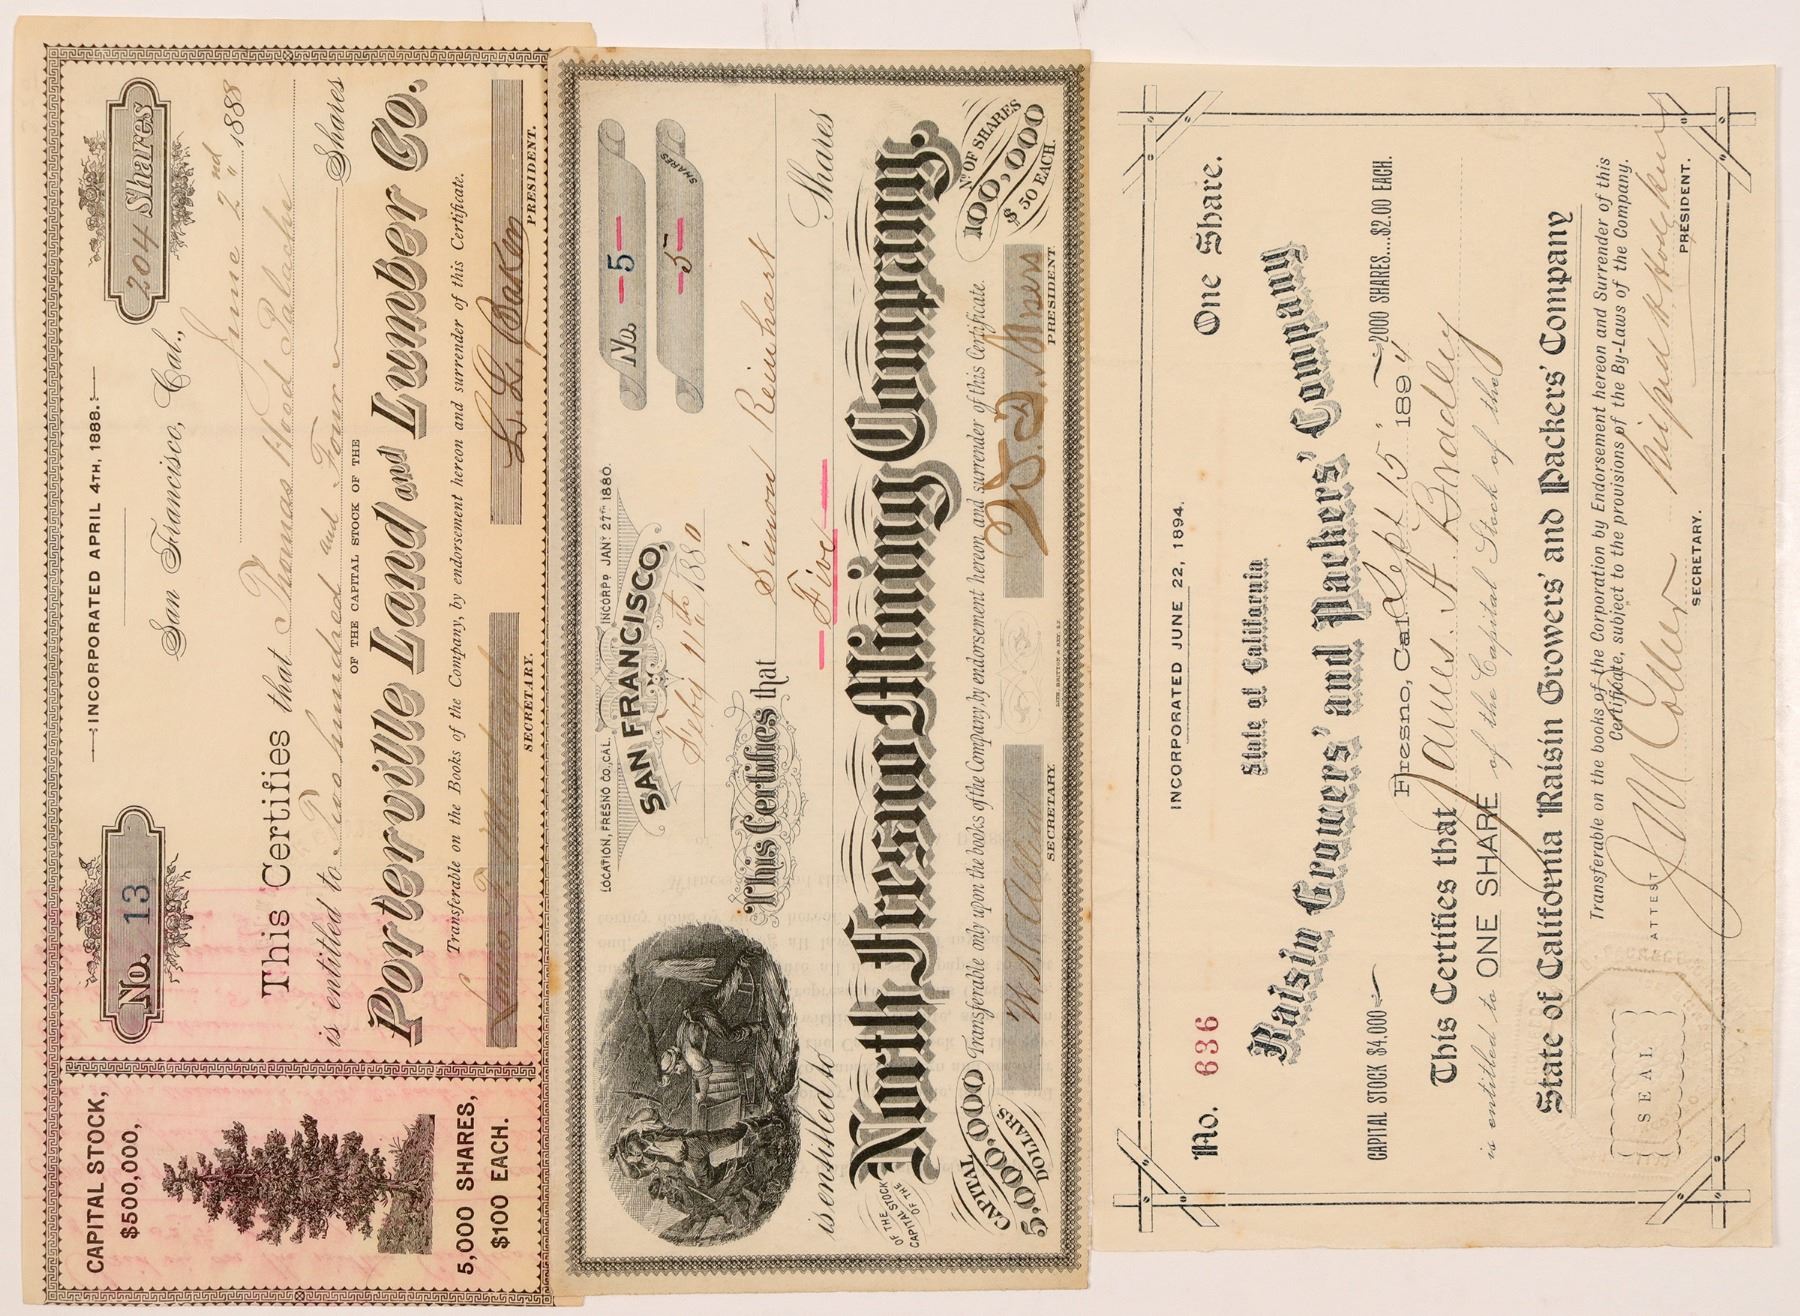 CAPITAL STOCK,
$500,000,
5,000 SHARES,
$100 EACH.
INCORPORATED APRIL 4TH, 1888.
No. 13
204 Shares
San Francisco, Cal., June 2nd 1888
This Certifies that Thomas Hood Palache
is entitled to Two hundred and Four Shares
OF THE CAPITAL STOCK OF THE
Porterville Land and Lumber Co.
Transferable on the Books of the Company, by endorsement hereon and surrender of this Certificate.
L. L. Baker
SECRETARY.
PRESIDENT.
LOCATION, FRESNO CO., CAL.
INCORPD JANY 27TH 1880.
SAN FRANCISCO,
Feby 11th 1880
No. 5
5 SHARES
This Certifies that Simon Reinhart
is entitled to Five Shares
OF THE
CAPITAL STOCK
OF THE
North Fresno Mining Company.
CAPITAL
5,000,000
DOLLARS
Transferable only upon the books of the Company, by endorsement hereon and surrender of this Certificate.
No. OF SHARES
100,000
$50 EACH.
SECRETARY.
PRESIDENT
INCORPORATED JUNE 22, 1894.
No. 636
One Share.
State of California
Raisin Growers' and Packers' Company
CAPITAL STOCK $4,000
2000 SHARES...$2.00 EACH.
Fresno, Cal. Sept 15" 1894
This Certifies that James A. Bradley
is entitled to ONE SHARE of the Capital Stock of the
State of California Raisin Growers' and Packers' Company
Transferable on the books of the Corporation by Endorsement hereon and Surrender of this
Certificate, subject to the provisions of the By-Laws of the Company.
SEAL
ATTEST
SECRETARY.
PRESIDENT.